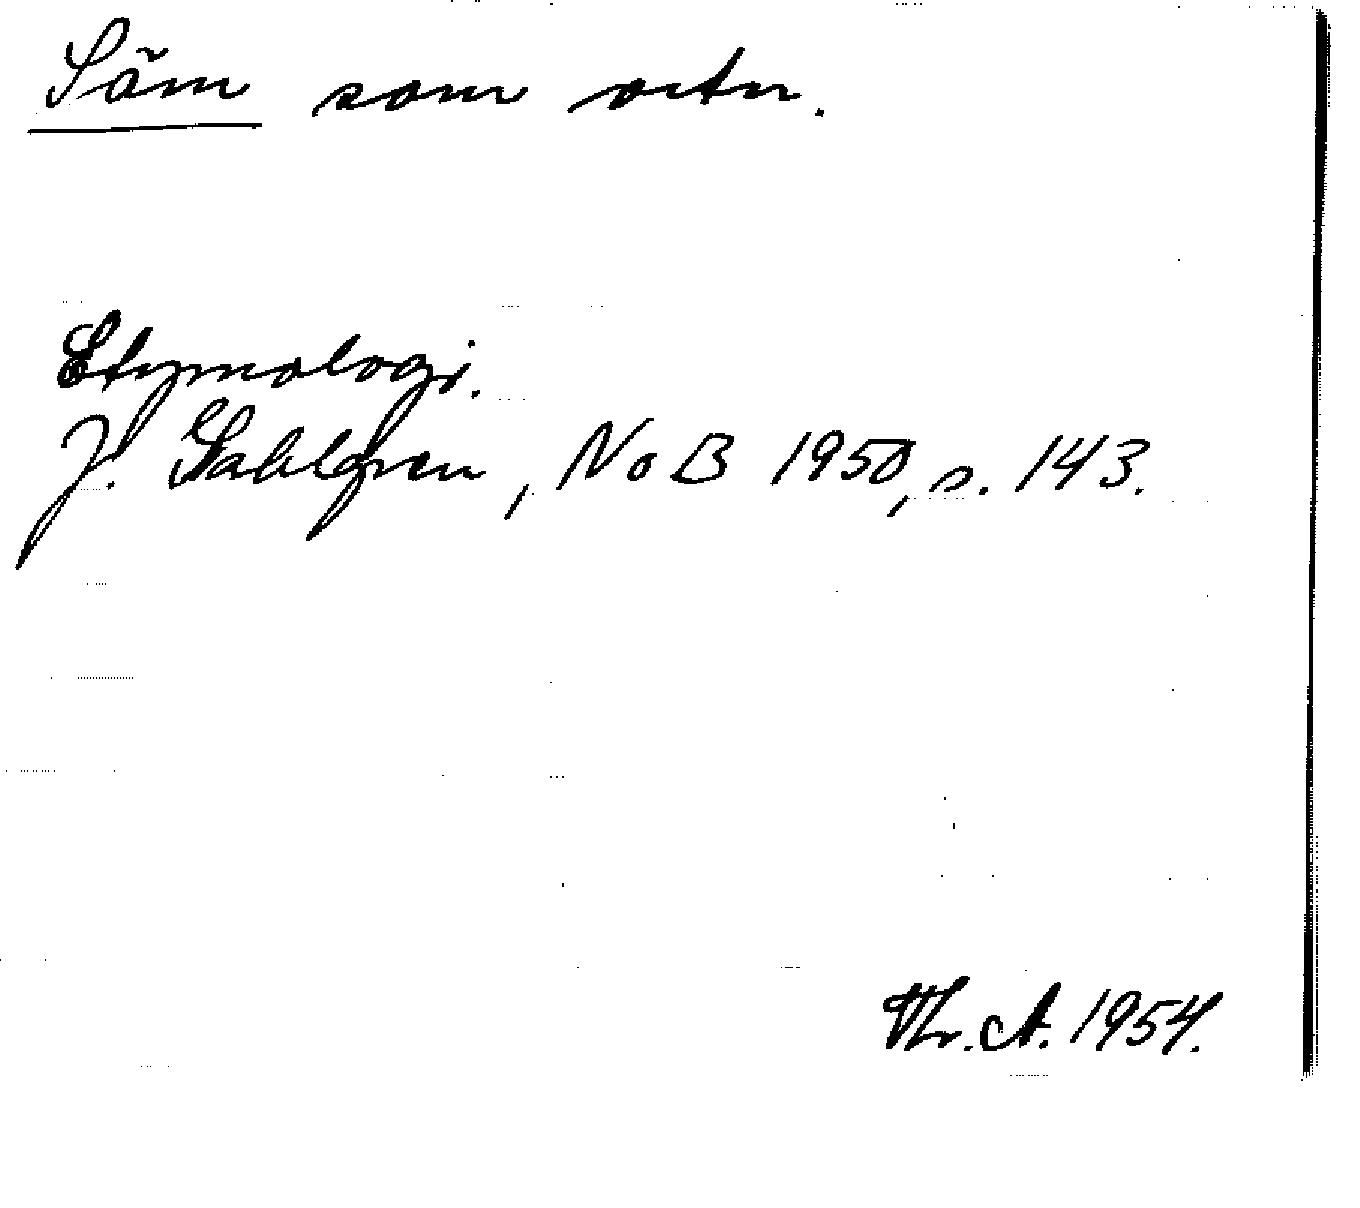 Säm som ortn.
Etymologi.
J. Sahlgren, NoB 1950, s. 143.
Th. A. 1954.